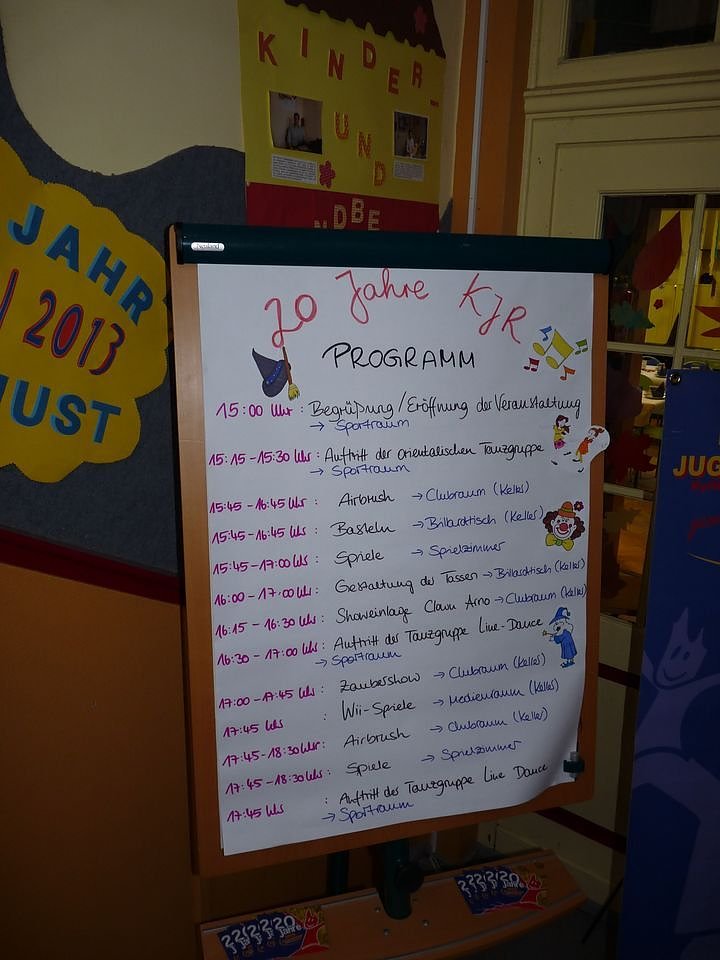 KINDER-
UND
NDBE
JAHR
2013
UST
Neuland
20 Jahre KJR
PROGRAMM
15:00 Uhr : Begrüßung/Eröffnung der Veranstaltung
→ Sportraum
15:15-15:30 Uhr : Auftritt der orientalischen Tanzgruppe
→ Sportraum
15:45-16:45 Uhr : Airbrush → Clubraum (Keller)
15:45-16:45 Uhr : Basteln → Billardtisch (Keller)
15:45-17:00 Uhr : Spiele → Spielzimmer
16:00-17:00 Uhr : Gestaltung der Tassen → Billardtisch (Keller)
16:15-16:30 Uhr : Showeinlage Clown Arno → Clubraum (Keller)
16:30-17:00 Uhr : Auftritt der Tanzgruppe Line-Dance
→ Sportraum
17:00-17:45 Uhr : Zaubershow → Clubraum (Keller)
17:45 Uhr : Wii-Spiele → Medienraum (Keller)
17:45-18:30 Uhr : Airbrush → Clubraum (Keller)
17:45-18:30 Uhr : Spiele → Spielzimmer
17:45 Uhr : Auftritt der Tanzgruppe Line Dance
→ Sportraum
JUG
20 Jahre
20 Jahre